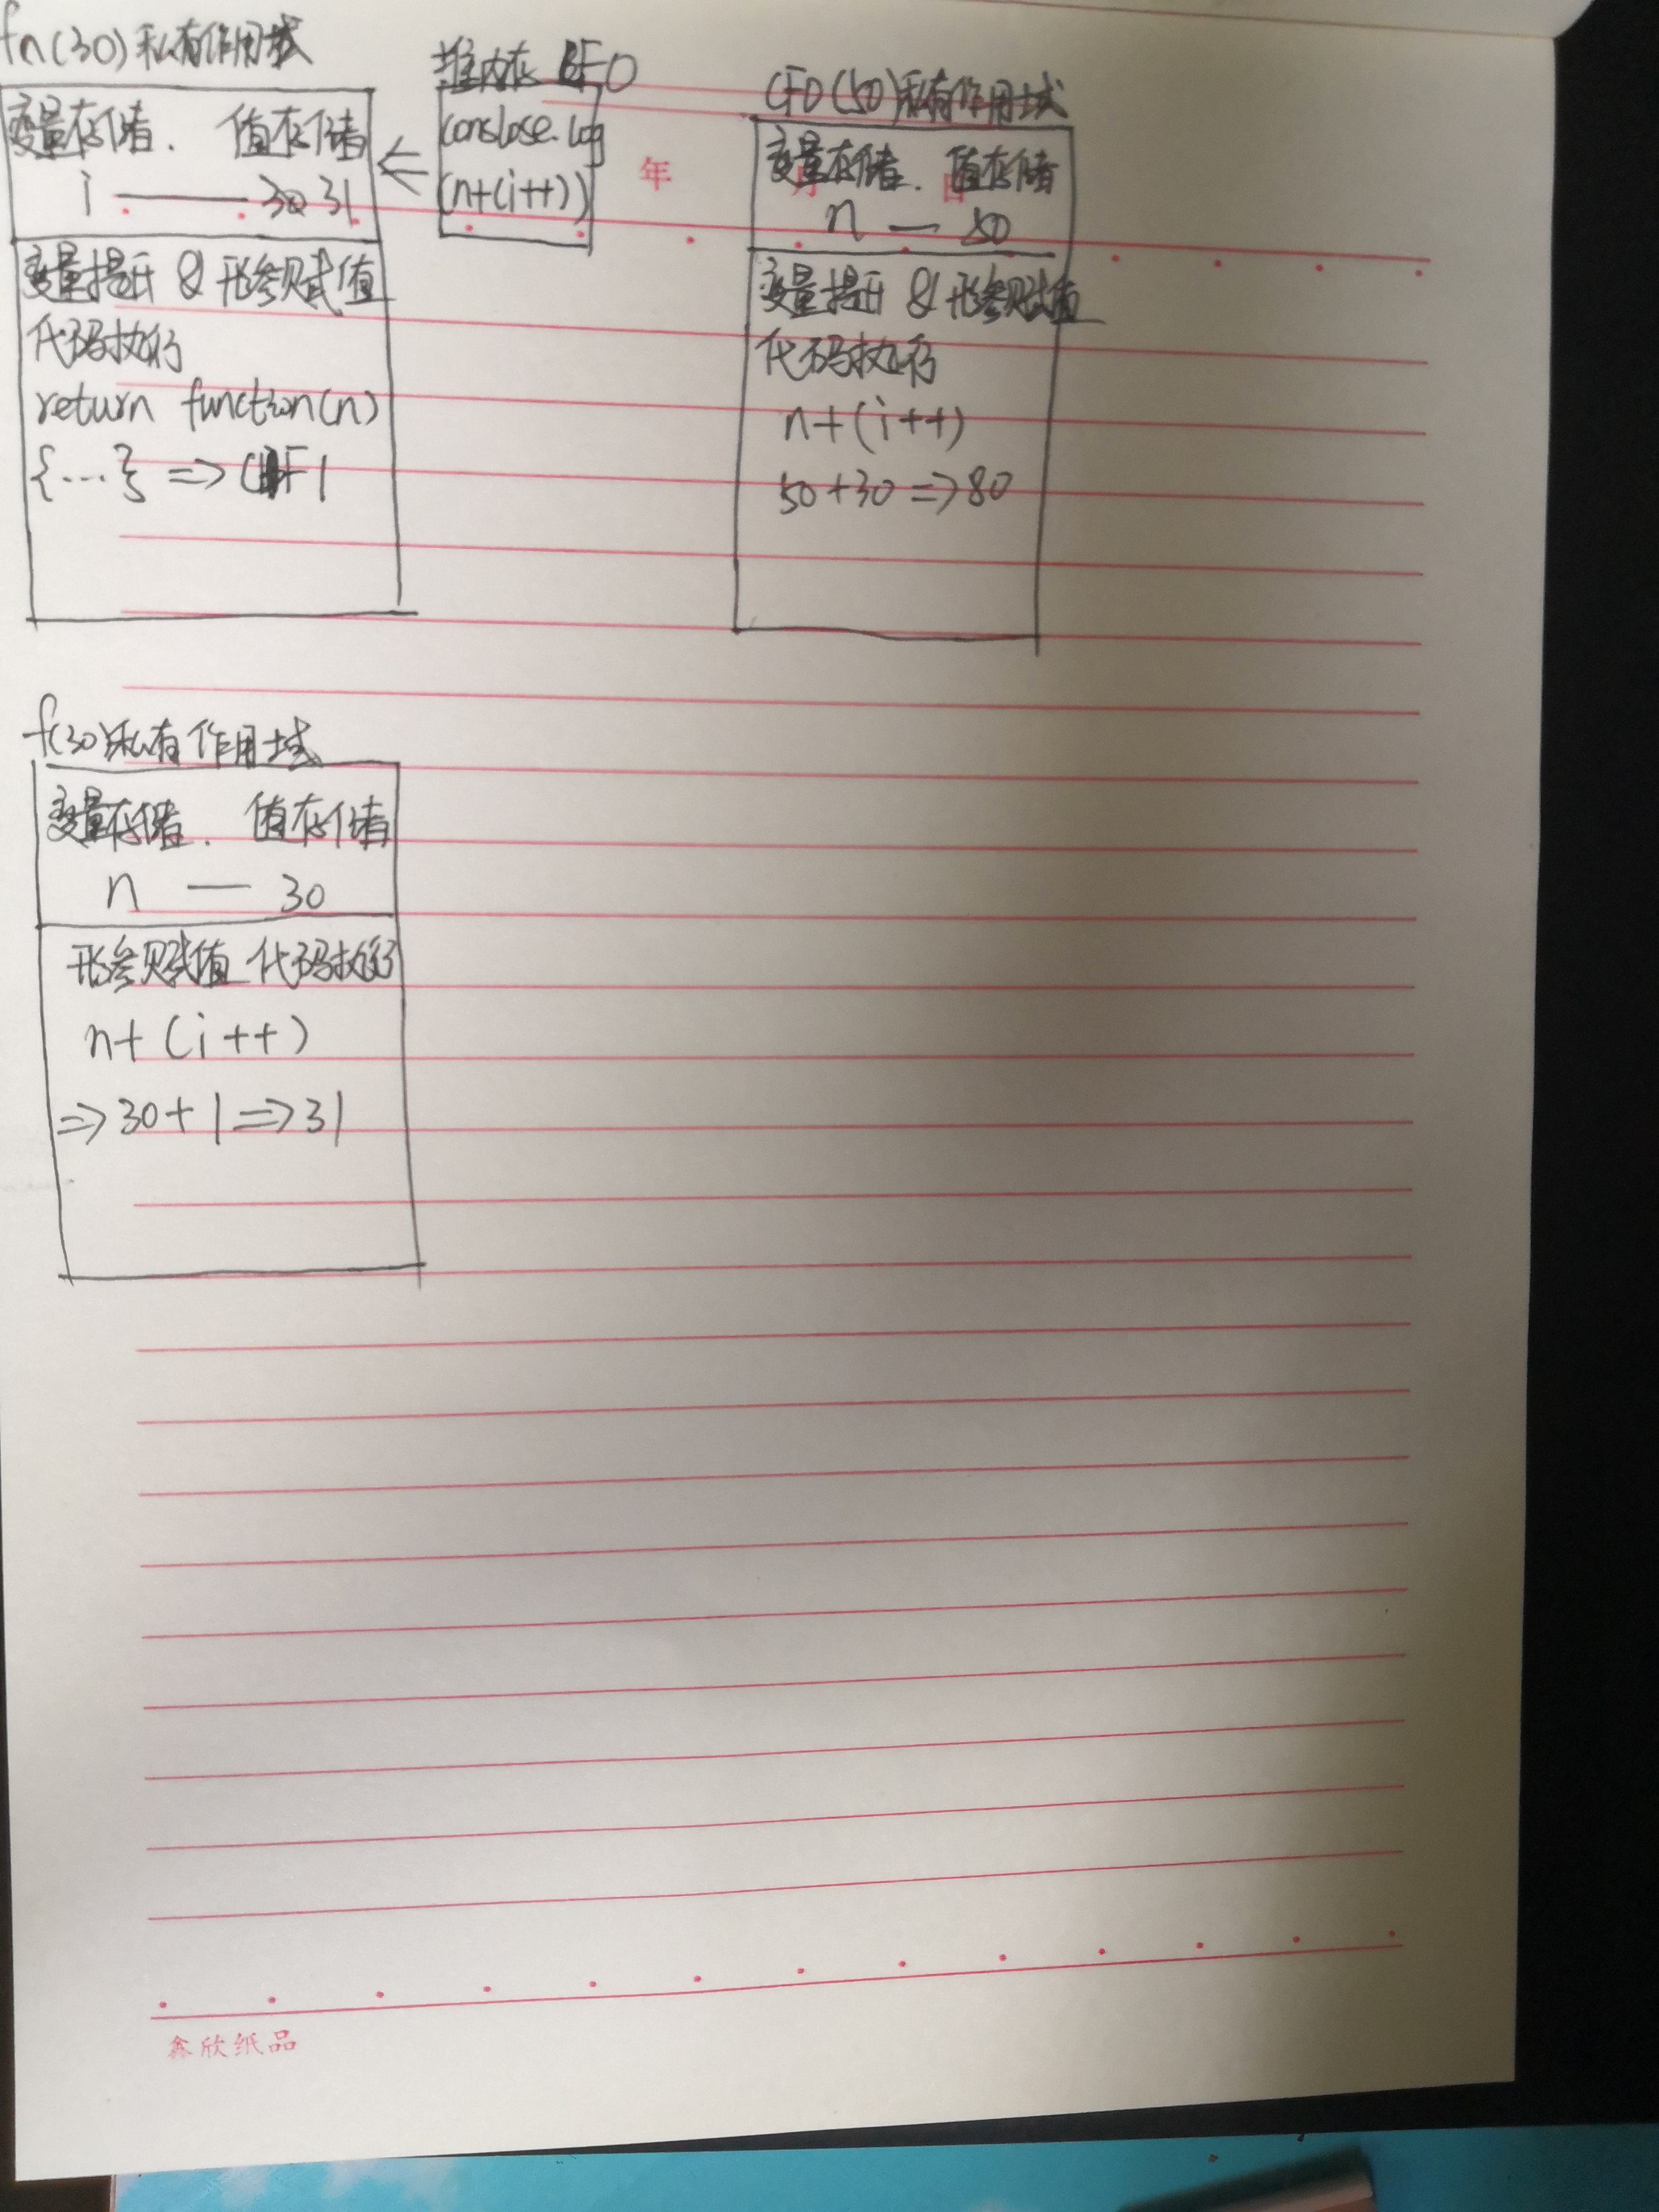 fn(30)私有作用域
变量存储. 值存储
i —— 30 31
变量提升 & 形参赋值
代码执行
return function(n)
{...} => F1
堆内存 F0
conslose.log
(n+(i++))
年 月 日
CF0(50)私有作用域
变量存储. 值存储
n — 50
变量提升 & 形参赋值
代码执行
n+(i++)
50+30=>80
f(30)私有作用域
变量存储. 值存储
n — 30
形参赋值 代码执行
n+(i++)
=>30+1=>31
鑫欣纸品